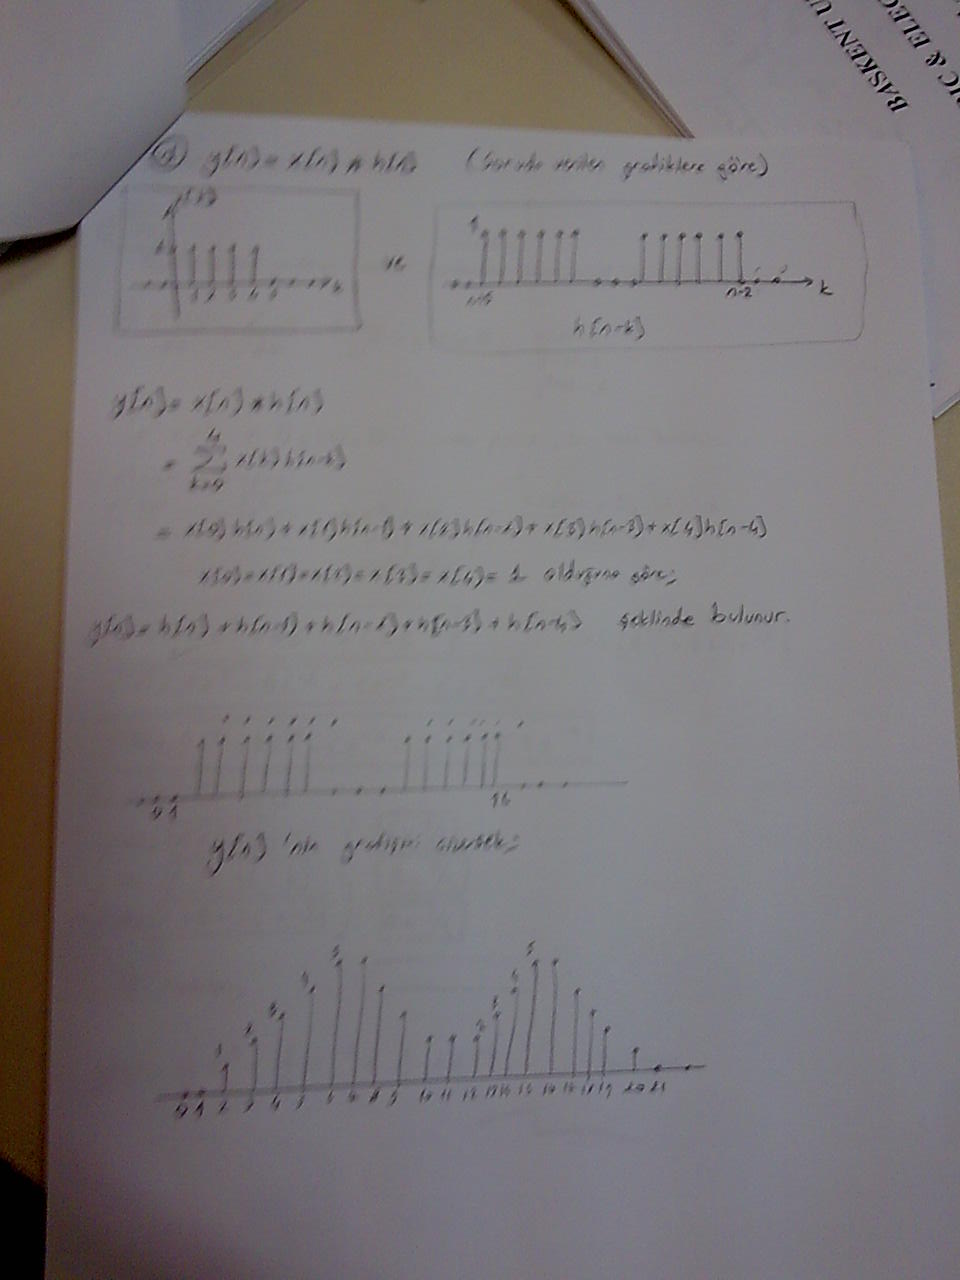 BAŞKENT U
IC & ELEC
d) y[n] = x[n] * h[n] (Soruda verilen grafiklere göre)
1
ve
1
k
n-2
h[n-k]
y[n] = x[n] * h[n]
= 4 ∑ k=0 x[k] h[n-k]
= x[0] h[n] + x[1] h[n-1] + x[2] h[n-2] + x[3] h[n-3] + x[4] h[n-4]
x[0] = x[1] = x[2] = x[3] = x[4] = 1 olduğuna göre;
y[n] = h[n] + h[n-1] + h[n-2] + h[n-3] + h[n-4] şeklinde bulunur.
0 1 16
y[n] 'nin grafiğini
1 2 3 4 5 2 3 4 5
0 1 2 3 4 5 6 7 8 9 10 11 12 20 21